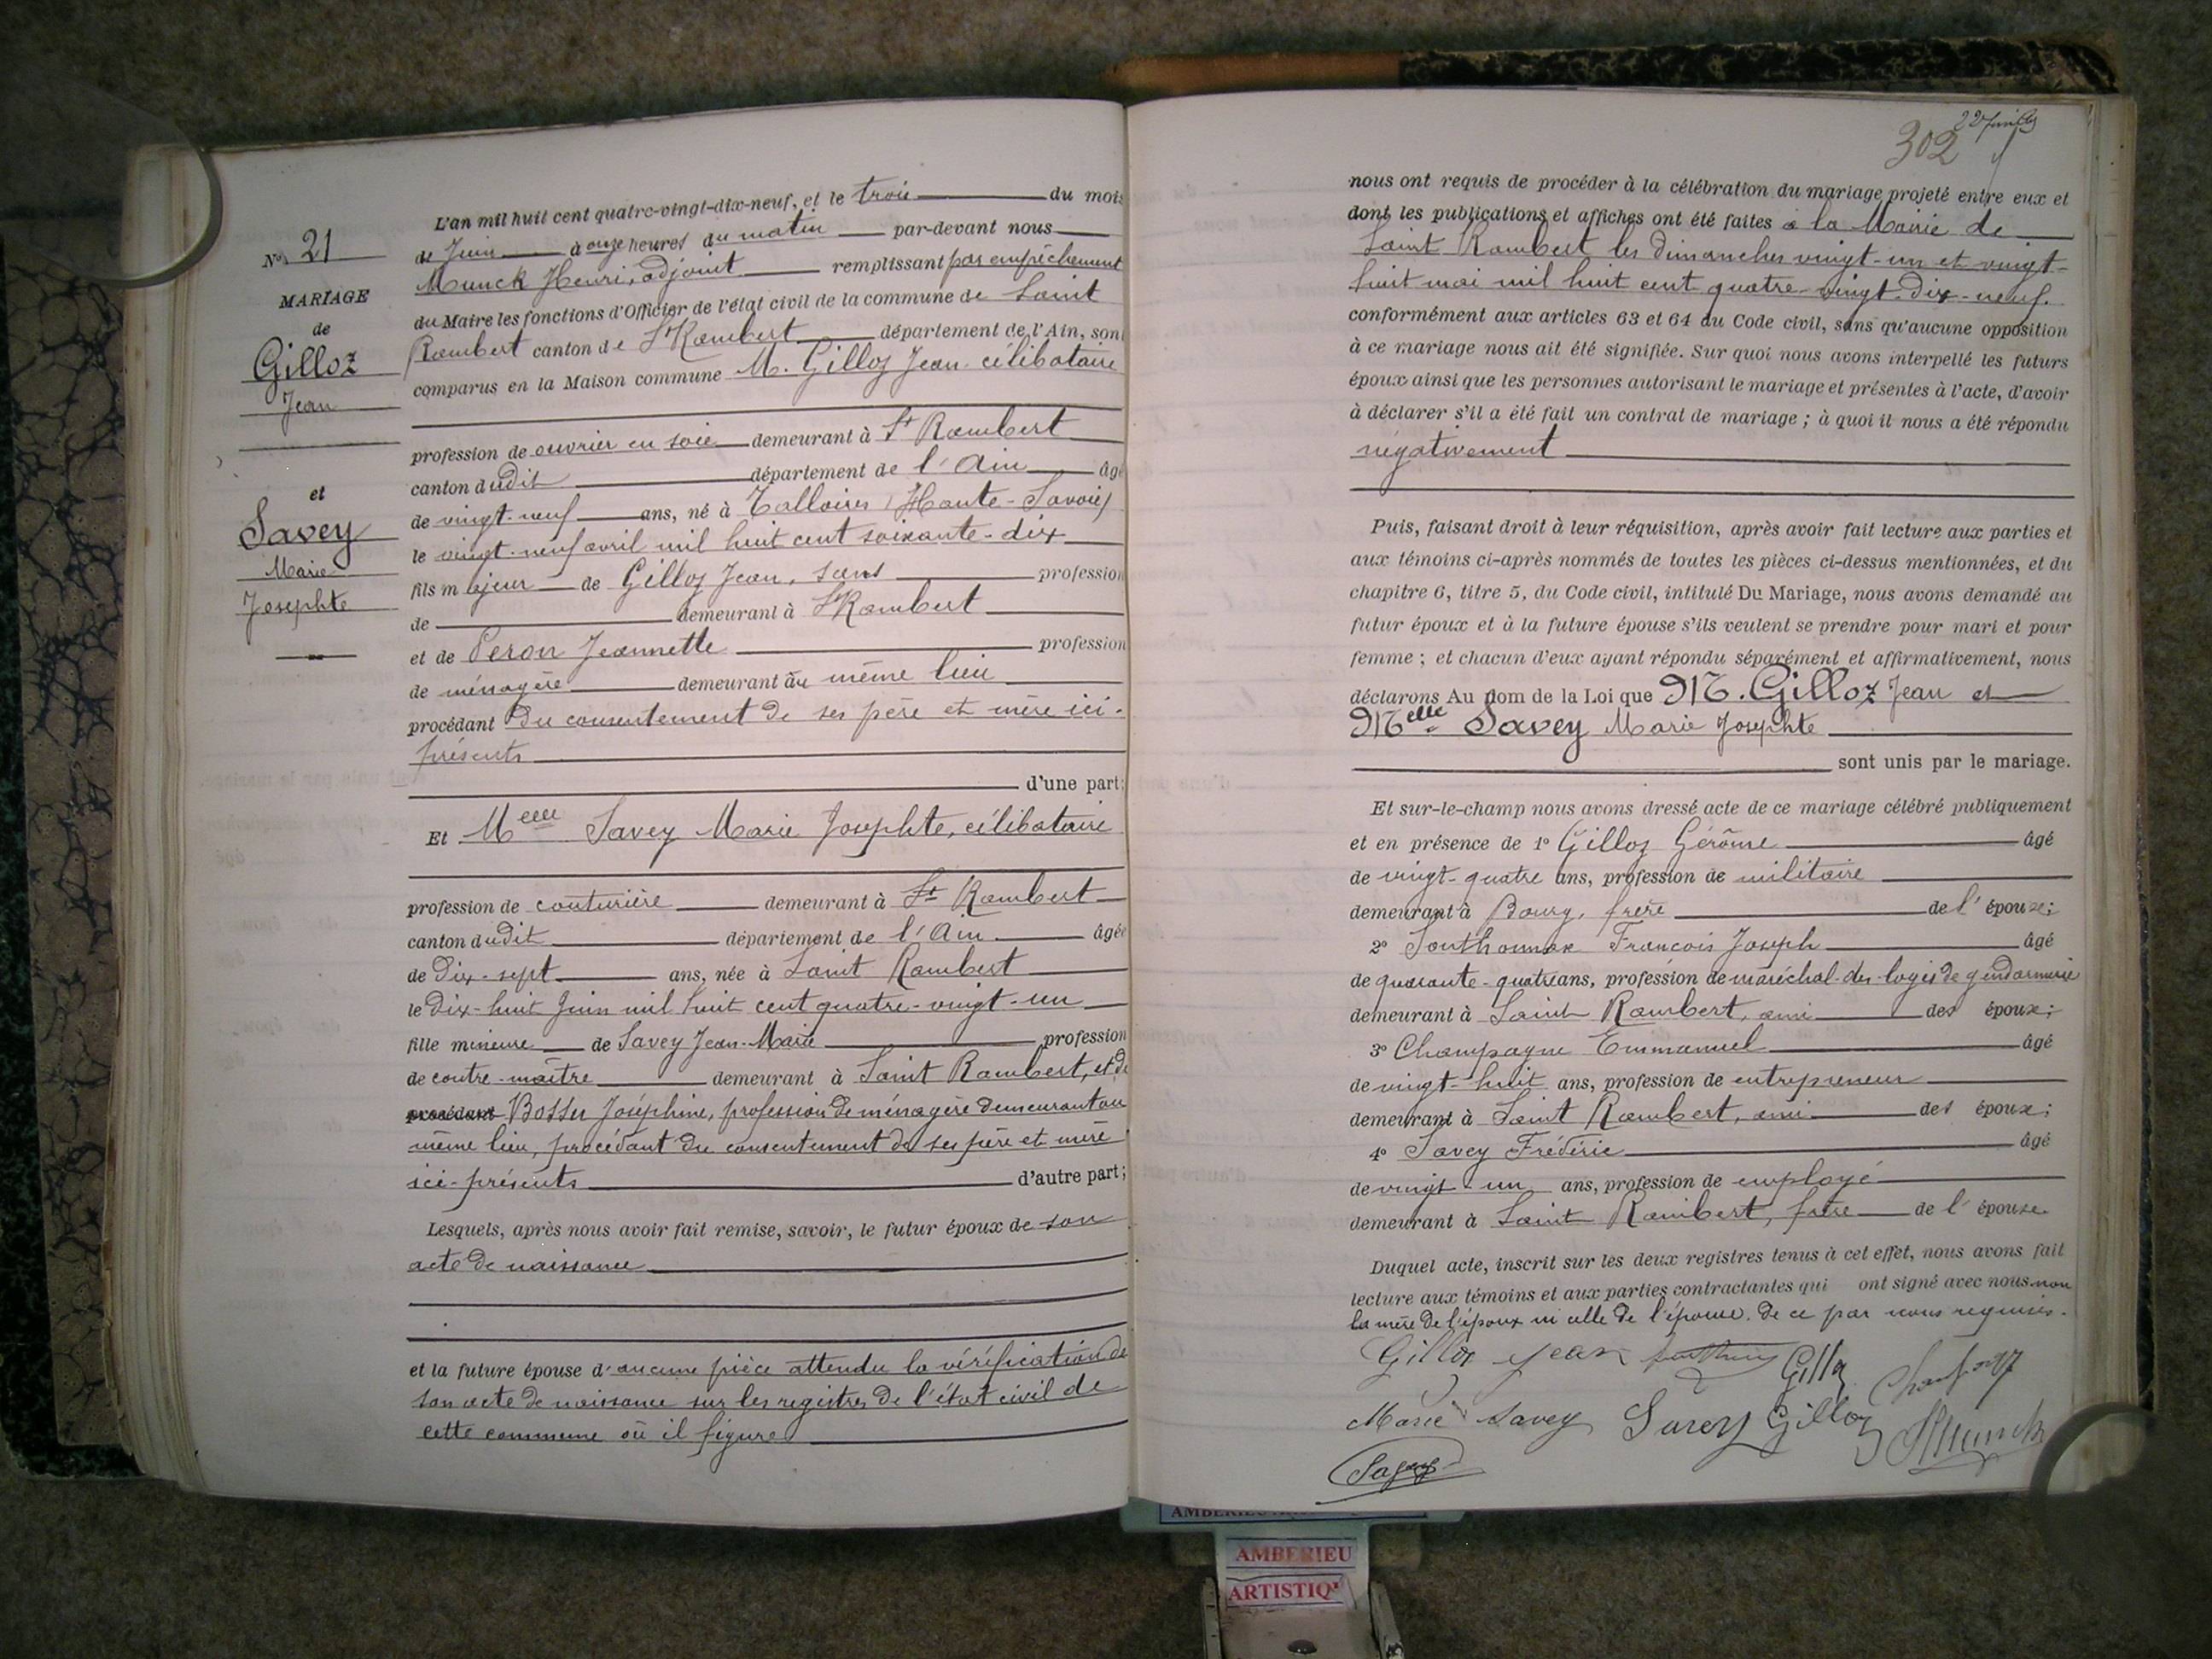 No 21
MARIAGE
de
Gilloz
Jean
et
Savey
Marie
Josephte
L'an mil huit cent quatre-vingt-dix-neuf, et le trois du mois
de Juin à onze heures du matin par-devant nous
Munck Henri, adjoint remplissant par empêchement
du Maire les fonctions d'Officier de l'état civil de la commune de Saint
Rambert canton de St Rambert département de l'Ain, sont
comparus en la Maison commune M. Gilloz Jean célibataire
profession de ouvrier en soie demeurant à St Rambert
canton dudit département de l'Ain âgé
de vingt-neuf ans, né à Talloires (Haute-Savoie)
le vingt-neuf avril mil huit cent soixante-dix
fils majeur de Gilloz Jean, sans profession
de demeurant à St Rambert
et de Peron Jeannette profession
de ménagère demeurant au même lieu
procédant du consentement de ses père et mère ici-
présents
d'une part;
Et Melle Savey Marie Josephte, célibataire
profession de couturière demeurant à St Rambert
canton dudit département de l'Ain âgée
de dix-sept ans, née à Saint Rambert
le dix-huit Juin mil huit cent quatre-vingt-un
fille mineure de Savey Jean-Marie profession
de contre-maître demeurant à Saint Rambert, et de
procédant Bosser Joséphine, profession de ménagère demeurant au
même lieu, procédant du consentement de ses père et mère
ici-présents d'autre part;
Lesquels, après nous avoir fait remise, savoir, le futur époux de son
acte de naissance
et la future épouse d'aucune pièce attendu la vérification de
son acte de naissance sur les registres de l'état civil de
cette commune où il figure
302
nous ont requis de procéder à la célébration du mariage projeté entre eux et
dont les publications et affiches ont été faites à la Mairie de
Saint Rambert les dimanches vingt-un et vingt-
huit mai mil huit cent quatre-vingt-dix-neuf.
conformément aux articles 63 et 64 du Code civil, sans qu'aucune opposition
à ce mariage nous ait été signifiée. Sur quoi nous avons interpellé les futurs
époux ainsi que les personnes autorisant le mariage et présentes à l'acte, d'avoir
à déclarer s'il a été fait un contrat de mariage ; à quoi il nous a été répondu
négativement
Puis, faisant droit à leur réquisition, après avoir fait lecture aux parties et
aux témoins ci-après nommés de toutes les pièces ci-dessus mentionnées, et du
chapitre 6, titre 5, du Code civil, intitulé Du Mariage, nous avons demandé au
futur époux et à la future épouse s'ils veulent se prendre pour mari et pour
femme ; et chacun d'eux ayant répondu séparément et affirmativement, nous
déclarons Au nom de la Loi que M. Gilloz Jean et
Melle Savey Marie Josephte
sont unis par le mariage.
Et sur-le-champ nous avons dressé acte de ce mariage célébré publiquement
et en présence de 1o Gilloz Gérôme âgé
de vingt-quatre ans, profession de militaire
demeurant à Bourg, frère de l'époux;
2o Jouthonnax François Joseph âgé
de quarante-quatre ans, profession de maréchal-des-logis de gendarmerie
demeurant à Saint Rambert, ami des époux;
3o Champagne Emmanuel âgé
de vingt-huit ans, profession de entrepreneur
demeurant à Saint Rambert, ami des époux;
4o Savey Frédéric âgé
de vingt-un ans, profession de employé
demeurant à Saint Rambert, frère de l'épouse.
Duquel acte, inscrit sur les deux registres tenus à cet effet, nous avons fait
lecture aux témoins et aux parties contractantes qui ont signé avec nous non
la mère de l'époux ni celle de l'épouse de ce par nous requises.
Gilloz Jean Gilloz
Marie Savey Savey Gilloz HMunck
Savey
AMBERIEU
ARTISTIQ